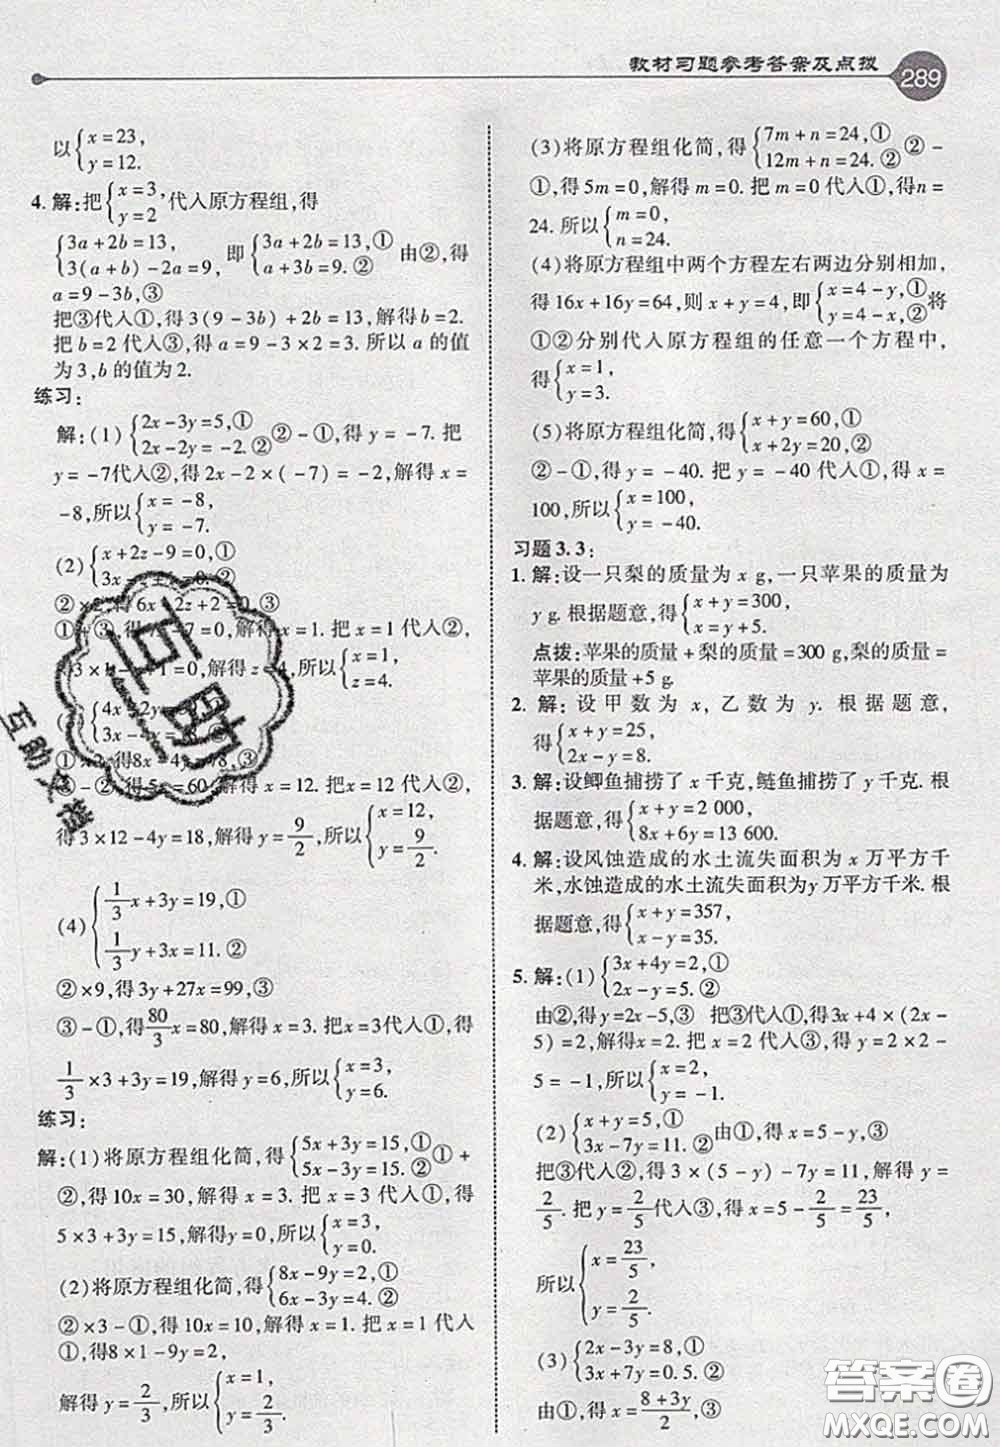 教材习题参考答案及点拨
289
以{x=23, y=12.
4. 解:把{x=3, y=2,代入原方程组,得
{3a+2b=13, 3(a+b)-2a=9, 即{3a+2b=13,① a+3b=9.② 由②,得
a=9-3b,③
把③代入①,得3(9-3b)+2b=13,解得b=2.
把b=2代入③,得a=9-3×2=3.所以a的值
为3,b的值为2.
练习:
解:(1){2x-3y=5,① 2x-2y=-2.② ②-①,得y=-7.把
y=-7代入②,得2x-2×(-7)=-2,解得x=
-8,所以{x=-8, y=-7.
(2){x+2z-9=0,① 3x-z+1=0.②
②×2,得6x-2z+2=0,③
①+③,得7x-7=0,解得x=1.把x=1代入②,
3×1-z+1=0,解得z=4,所以{x=1, z=4.
{4x 3x-4
①×2,得8x+4y=78,③
③-②,得5x=60,解得x=12.把x=12代入②,
得3×12-4y=18,解得y=9/2,所以{x=12, y=9/2.
(4){1/3x+3y=19,① 1/3y+3x=11.②
②×9,得3y+27x=99,③
③-①,得80/3x=80,解得x=3.把x=3代入①,得
1/3×3+3y=19,解得y=6,所以{x=3, y=6.
练习:
解:(1)将原方程组化简,得{5x+3y=15,① 5x-3y=15.② ①+
②,得10x=30,解得x=3.把x=3代入①,得
5×3+3y=15,解得y=0,所以{x=3, y=0.
(2)将原方程组化简,得{8x-9y=2,① 6x-3y=4.②
②×3-①,得10x=10,解得x=1.把x=1代入
①,得8×1-9y=2,
解得y=2/3,所以{x=1, y=2/3.
(3)将原方程组化简,得{7m+n=24,① 12m+n=24.② ②-
①,得5m=0,解得m=0.把m=0代入①,得n=
24.所以{m=0, n=24.
(4)将原方程组中两个方程左右两边分别相加,
得16x+16y=64,则x+y=4,即{x=4-y,① y=4-x,② 将
①②分别代入原方程组的任意一个方程中,
得{x=1, y=3.
(5)将原方程组化简,得{x+y=60,① x+2y=20,②
②-①,得y=-40.把y=-40代入①,得x=
100,所以{x=100, y=-40.
习题3.3:
1. 解:设一只梨的质量为x g,一只苹果的质量为
y g.根据题意,得{x+y=300, x=y+5.
点拨:苹果的质量+梨的质量=300 g,梨的质量=
苹果的质量+5 g.
2. 解:设甲数为x,乙数为y.根据题意,
得{x+y=25, 2x-y=8.
3. 解:设鲫鱼捕捞了x千克,鲢鱼捕捞了y千克.根
据题意,得{x+y=2 000, 8x+6y=13 600.
4. 解:设风蚀造成的水土流失面积为x万平方千
米,水蚀造成的水土流失面积为y万平方千米.根
据题意,得{x+y=357, x-y=35.
5. 解:(1){3x+4y=2,① 2x-y=5.②
由②,得y=2x-5,③ 把③代入①,得3x+4×(2x-
5)=2,解得x=2.把x=2代入③,得y=2×2-
5=-1,所以{x=2, y=-1.
(2){x+y=5,① 3x-7y=11.② 由①,得x=5-y,③
把③代入②,得3×(5-y)-7y=11,解得y=
2/5.把y=2/5代入③,得x=5-2/5=23/5.
所以{x=23/5, y=2/5.
(3){2x-3y=8,① 3x+7y=0.5.②
由①,得x=(8+3y)/2,③
互助
互助文档
答案圈
MXQE.COM